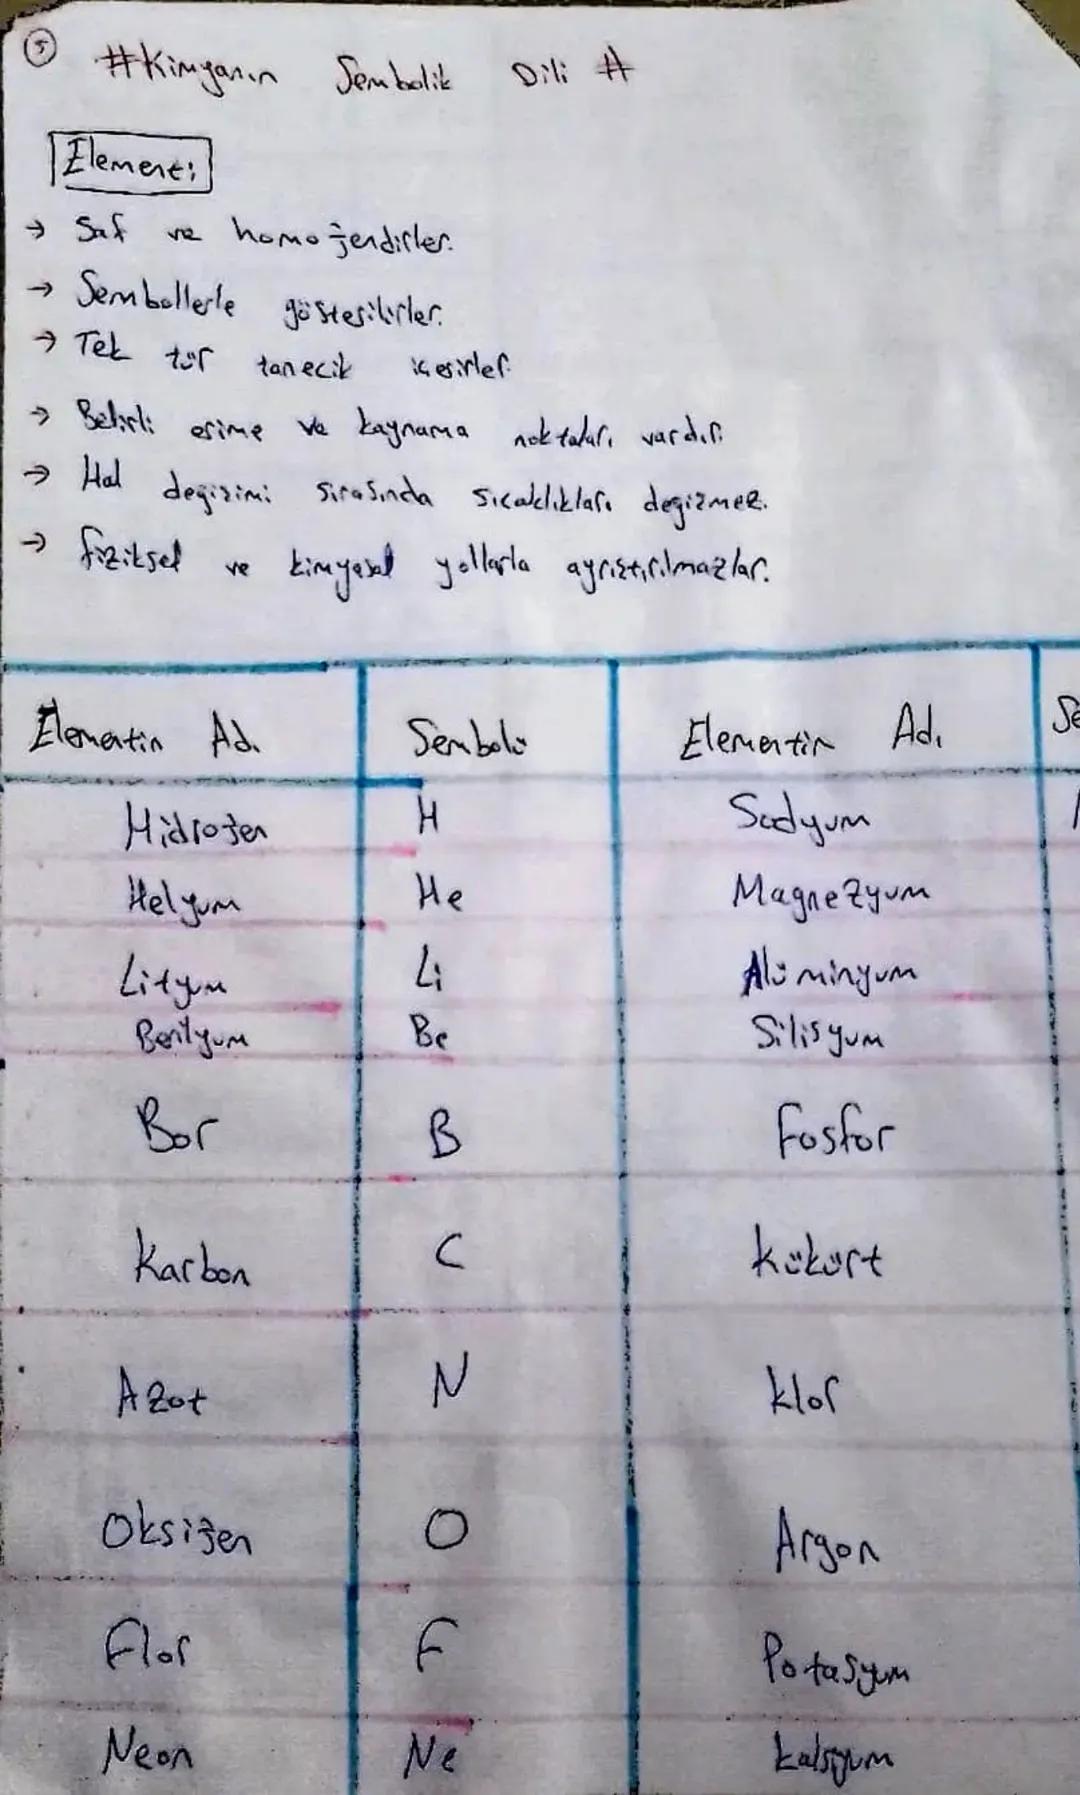 5
#Kimyanın Sembolik Dili #
Element:
→ Saf ve homojendirler.
→ Sembollerle gösterilirler.
→ Tek tür tanecik içerirler.
→ Belirli erime ve kaynama noktaları vardır.
→ Hal değişimi sırasında sıcaklıkları değişmez.
→ fiziksel ve kimyasal yollarla ayrıştırılmazlar.
Elementin Adı Sembolü Elementin Adı Se
Hidrojen H Sodyum
Helyum He Magnezyum
Lityum Li Alüminyum
Berilyum Be Silisyum
Bor B Fosfor
Karbon C Kükürt
Azot N Klor
Oksijen O Argon
Flor F Potasyum
Neon Ne Kalsiyum